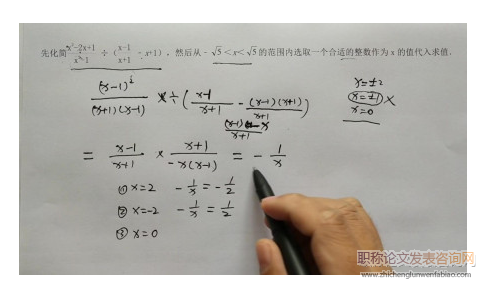 先化简 x²-2x+1 / x²-1 ÷ ( x-1 / x+1 - x+1 )，然后从 -√5 < x < √5 的范围内选取一个合适的整数作为 x 的值代入求值.
(x-1)² / (x+1)(x-1) ÷ ( x-1 / x+1 - (x-1)(x+1) / x+1 )
x=±2
x=±1 ×
x=0
(x-1) -x / x+1
= x-1 / x+1 × x+1 / -x(x-1) = - 1/x
① x=2 -1/x = -1/2
② x=-2 -1/x = 1/2
③ x=0
职称论文发表咨询网
www.zhichenglunwenfabiao.com